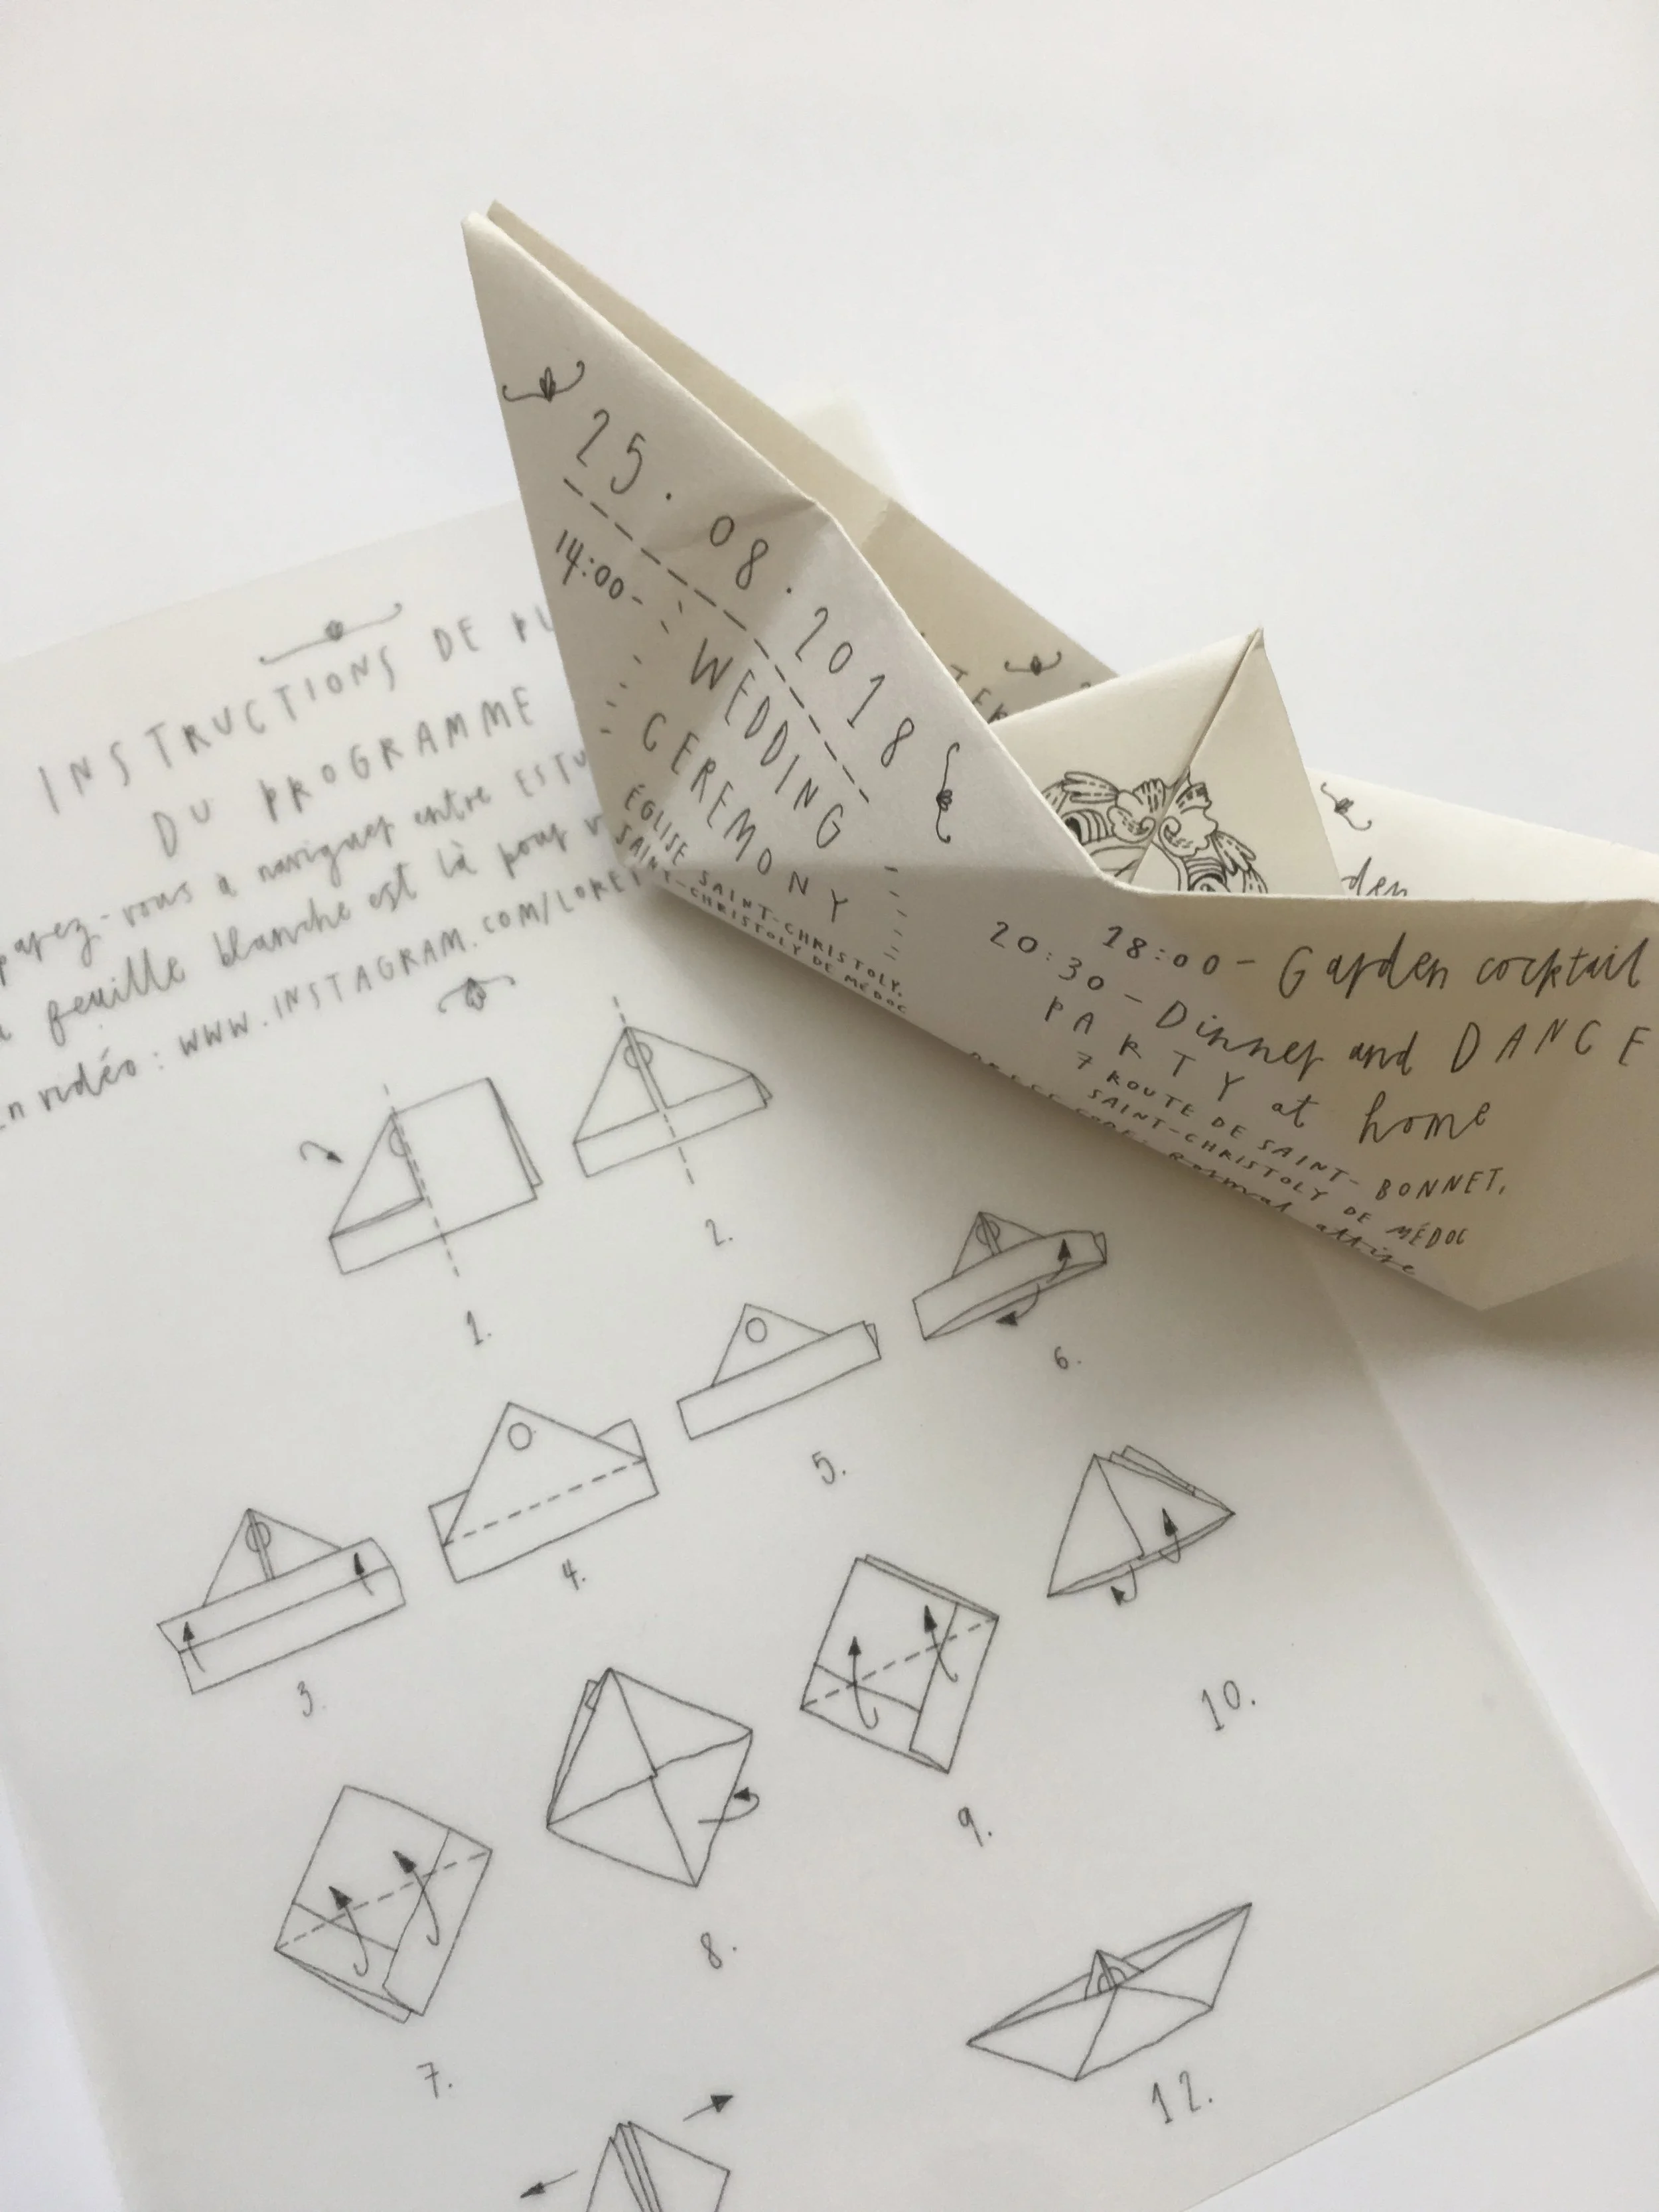 INSTRUCTIONS DE
DU PROGRAMME
-vous à naviguer entre
feuille blanche est là pour
vidéo: WWW.INSTAGRAM.COM/
1.
2.
3.
4.
5.
6.
7.
8.
9.
10.
12.
25.08.2018
14:00-
WEDDING
CEREMONY
ÉGLISE SAINT-CHRISTOLY,
SAINT-CHRISTOLY DE MÉDOC
18:00- Garden cocktail
20:30- Dinner and DANCE
PARTY at home
7 ROUTE DE SAINT-BONNET,
SAINT-CHRISTOLY DE MÉDOC
attire